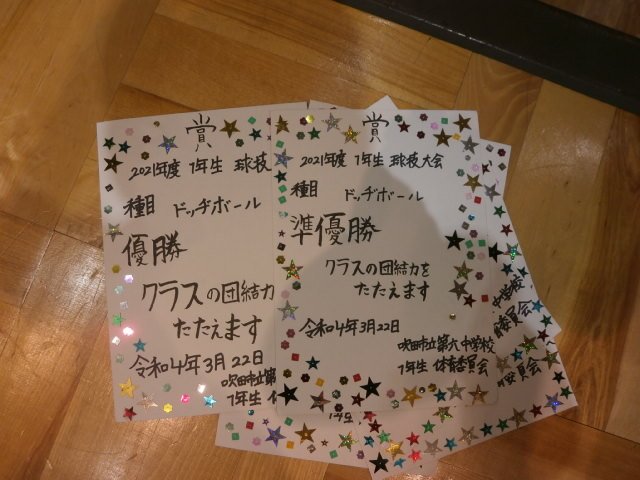 賞
2021年度 1年生 球技
種目 ドッヂボール
優勝
クラスの団結力
たたえます
令和4年3月22日
吹田市立第
1年生
賞
2021年度 1年生 球技大会
種目 ドッヂボール
準優勝
クラスの団結力を
たたえます
令和4年3月22日
吹田市立第六中学校
1年生 体育委員会
中学校
委員会
委員会